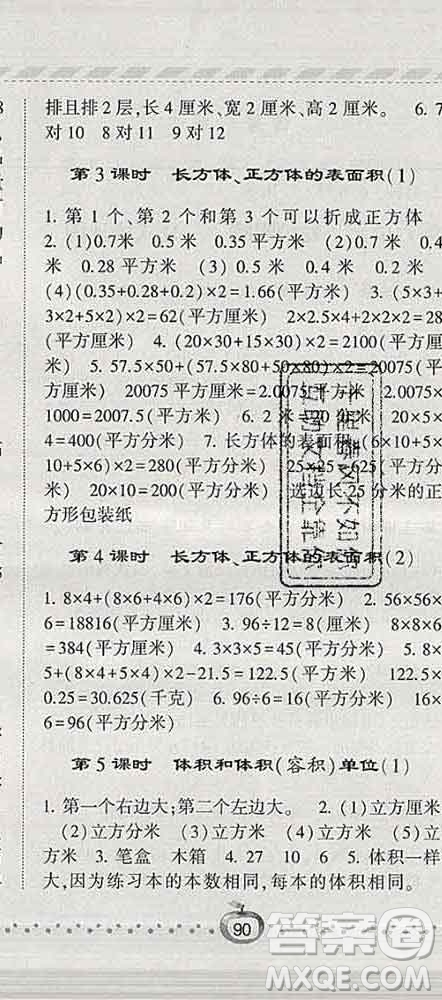 排且排 2 层,长 4 厘米、宽 2 厘米、高 2 厘米。 6. 7
对 10 8 对 11 9 对 12
第 3 课时 长方体、正方体的表面积(1)
1. 第 1 个、第 2 个和第 3 个可以折成正方体
2. (1)0.7米 0.5米 0.35 平方米 (2)0.7米 0.4
米 0.28 平方米 (3) 0.5 米 0.4 米 0.2 平方米
(4)(0.35+0.28+0.2)×2=1.66(平方米) 3. (5×3+
3×2+5×2)×2=62(平方厘米) 2×2.5×4+2×2×4=28
(平方厘米) 4. (20×30+15×30)×2=2100(平方厘
米) 5. 57.5×50+(57.5×80+50×80)×2=20075(平方
厘米) 20075 平方厘米=2.0075 平方米 2.0075×
1000=2007.5(平方米) 6. 2 米=20 分米 20×5×
4=400(平方分米) 7. 长方体的表面积:(6×10+5×
10+5×6)×2=280(平方分米) 25×25=625(平方分
米) 20×10=200(平方分米) 选边长 25 分米的正
方形包装纸
第 4 课时 长方体、正方体的表面积(2)
1. 8×4+(8×6+4×6)×2=176(平方分米) 2. 56×56×
6=18816(平方厘米) 3. 96÷12=8(厘米) 8×8×6
=384(平方厘米) 4. 3×3×5=45(平方分米) 5. 8×
5+(8×4+5×4)×2-21.5=122.5(平方米) 122.5×
0.25=30.625(千克) 6. 96÷6=16(平方分米) 16×
6=96(平方分米)
第 5 课时 体积和体积(容积)单位(1)
1. 第一个右边大;第二个左边大。 2. (1)立方厘米
(2)立方分米 (3)立方米 (4)立方分米 (5)立方
米 3. 笔盒 木箱 4. 27 10 6 5. 体积一样
大,因为练习本的本数相同,每本的体积相同。
90
答案圈
MXQE.COM